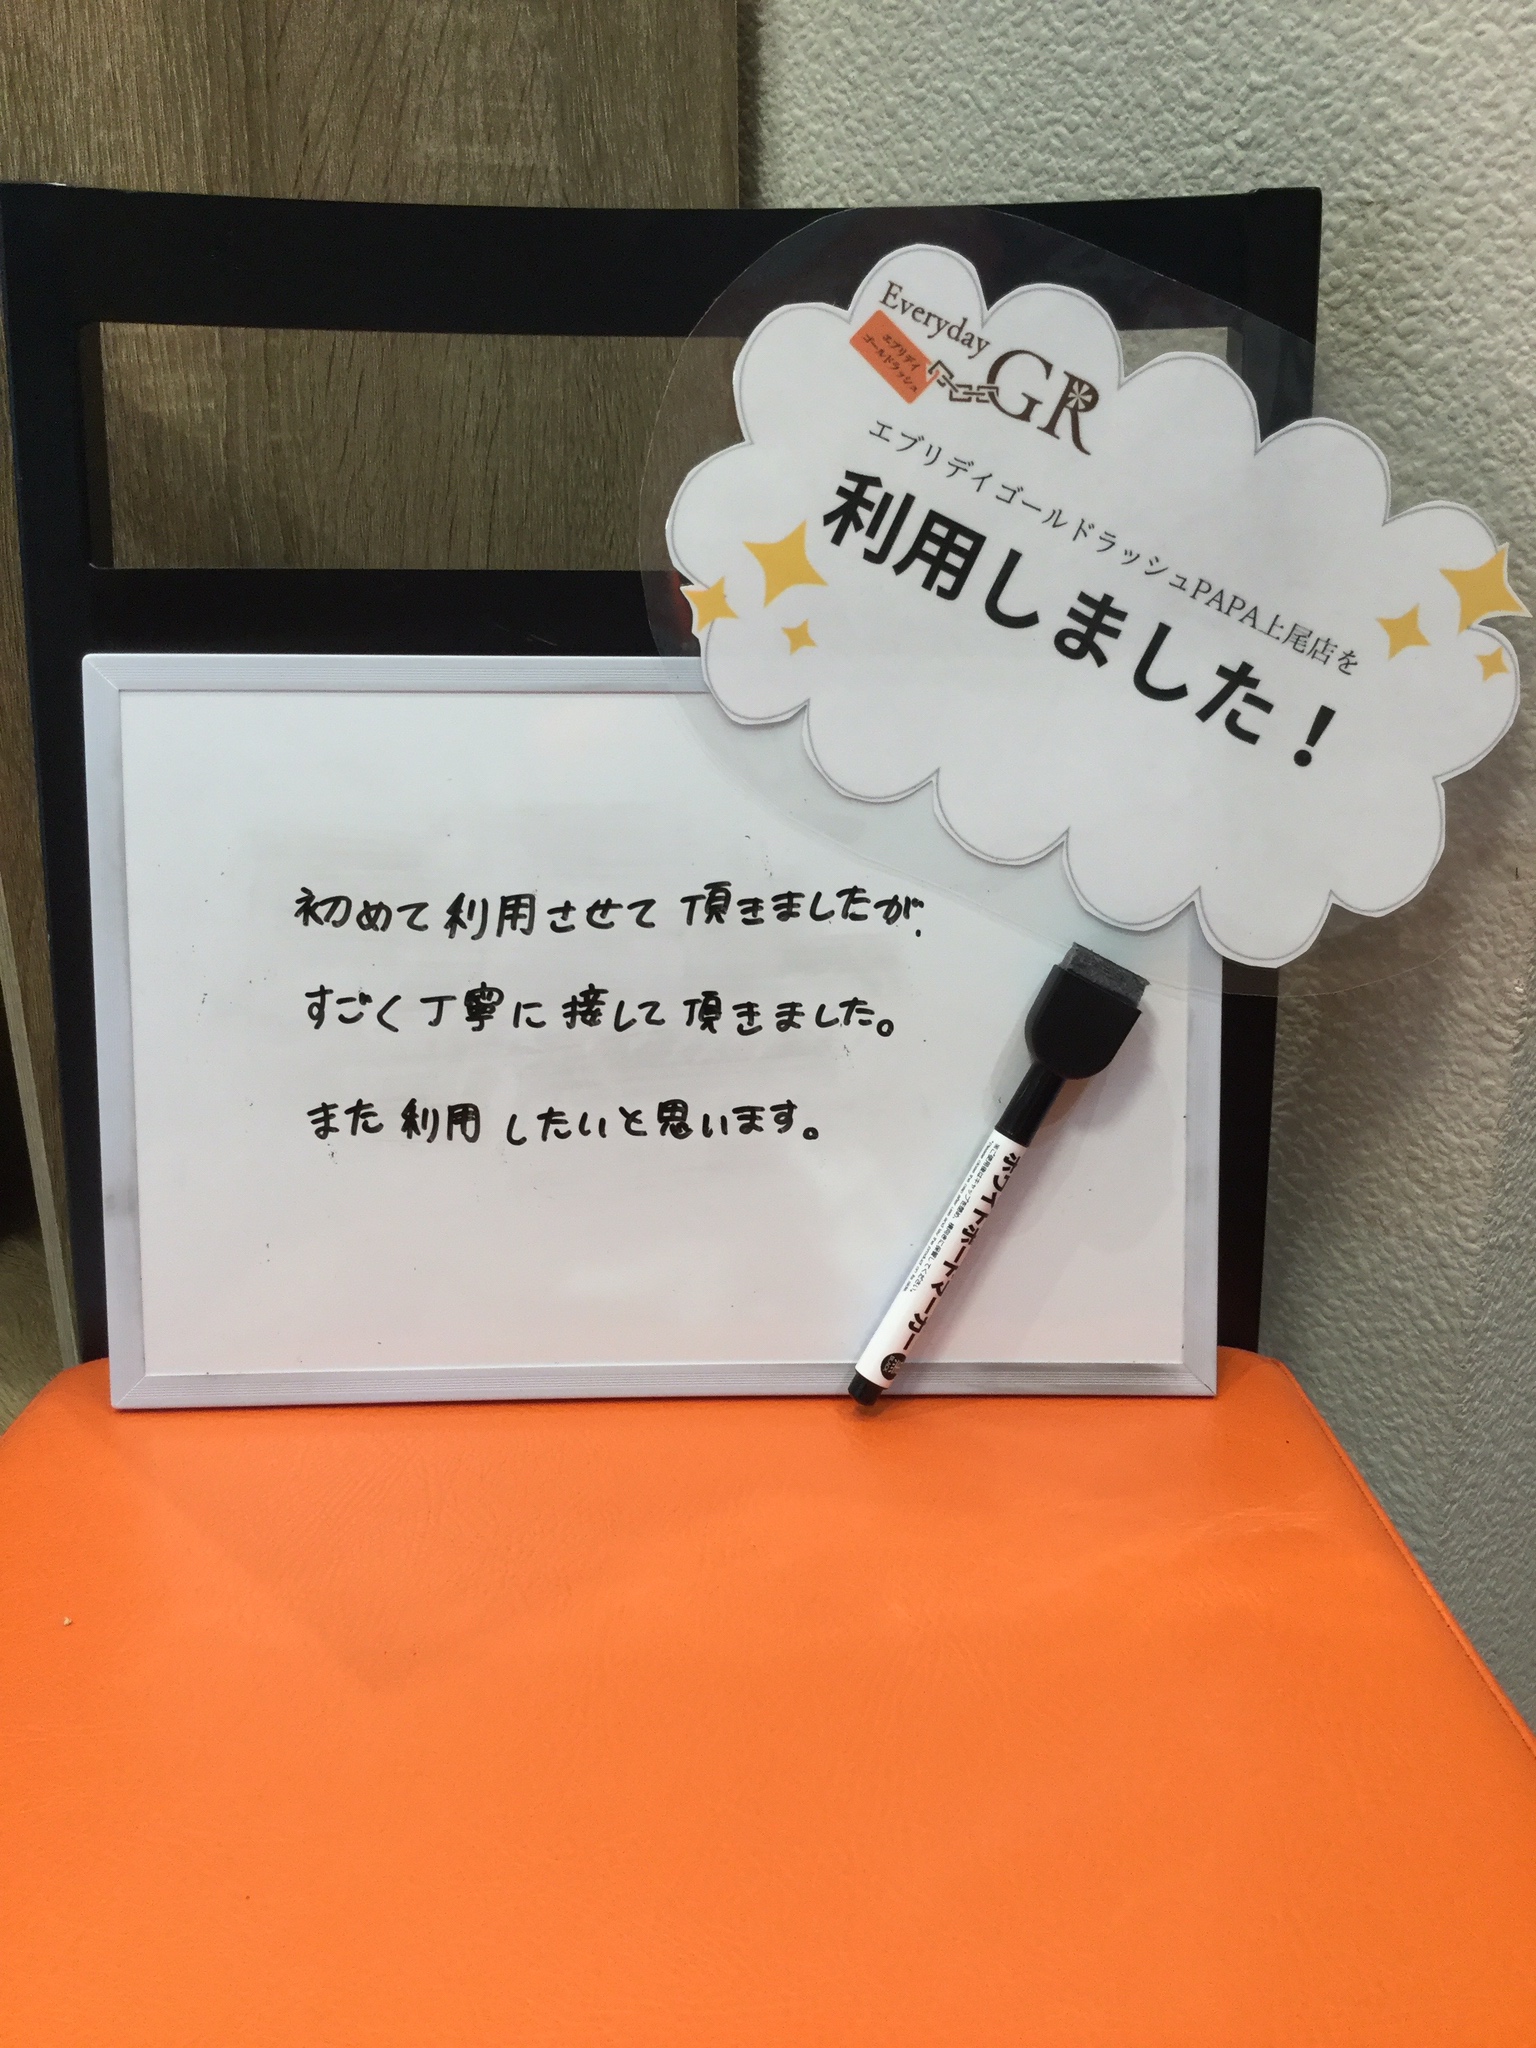 Everyday
エブリデイ
ゴールドラッシュ
GR
エブリデイゴールドラッシュPAPA上尾店を
利用しました！
初めて利用させて頂きましたが、
すごく丁寧に接して頂きました。
また利用したいと思います。
ホワイトボードマーカー